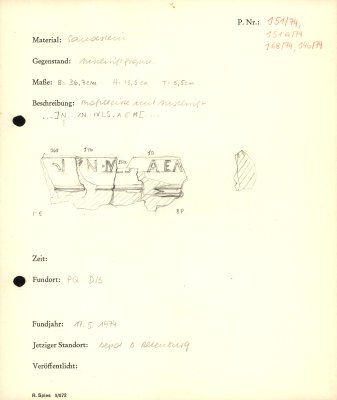 P. Nr.: 151/74,
151a/74
148/74, 146/74
Material: Sandstein
Gegenstand: Inschriftfragment
Maße: B: 36,7cm H: 13,5cm T: 5,5cm
Beschreibung: Profilleiste mit Inschrift
...]N..N.IVLS.AEMI...
148 151a 151 N N·IVLS AEA
Zeit:
Fundort: PQ D/3
Fundjahr: 14. 5. 1974
Jetziger Standort: Depot
Veröffentlicht:
R. Spies 5/072